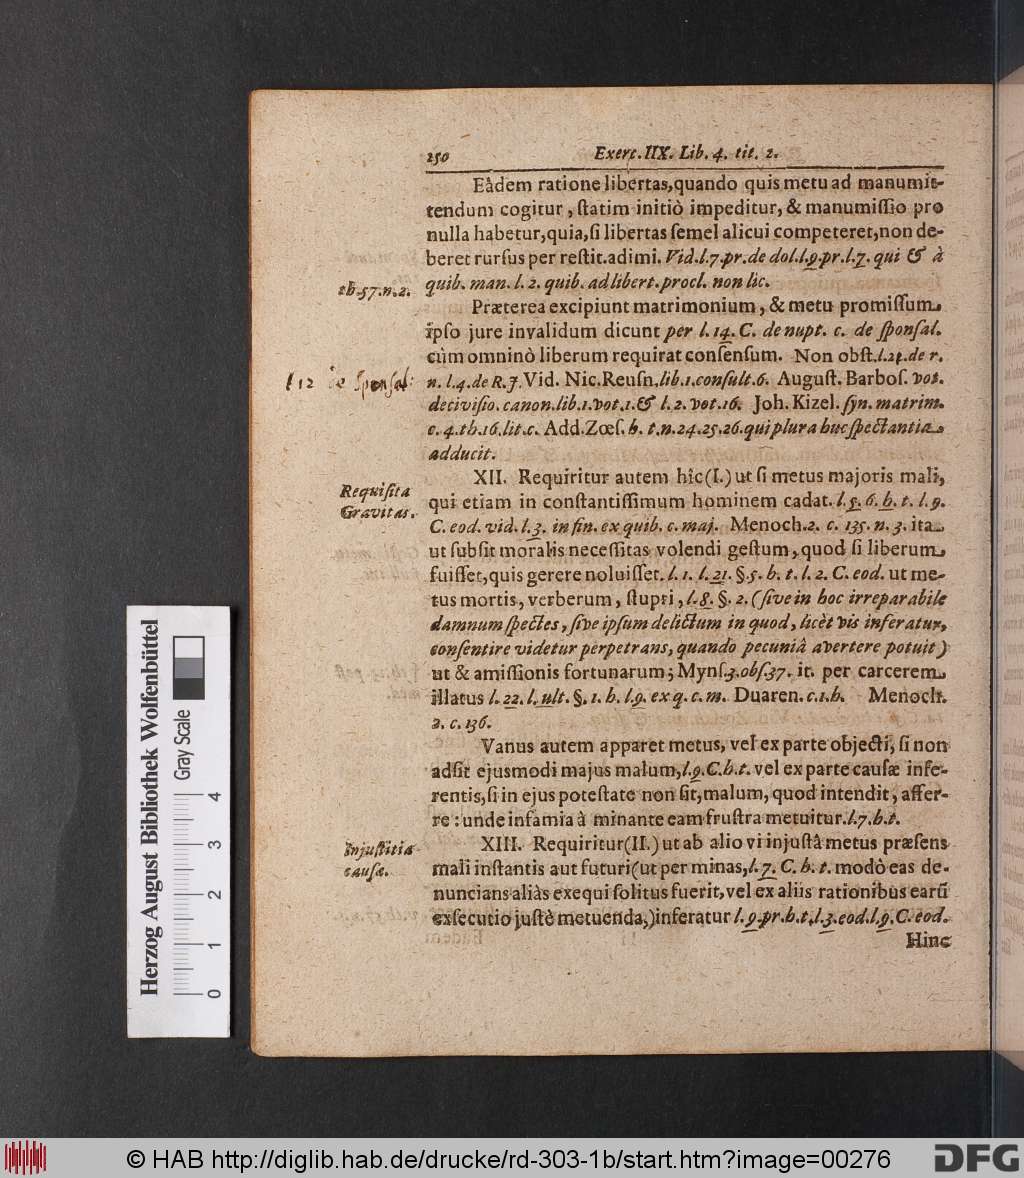 250 Exerc. IIX. Lib. 4. tit. 2.
Eâdem ratione libertas, quando quis metu ad manumit-
tendum cogitur, ſtatim initiò impeditur, & manumiſſio pro
nulla habetur, quia, ſi libertas ſemel alicui competeret, non de-
beret rurſus per reſtit. adimi. Vid. l. 7. pr. de dol. l. 9. pr. l. 7. qui & à
th. 57. n. 2. quib. man. l. 2. quib. ad libert. procl. non lic.
Præterea excipiunt matrimonium, & metu promiſſum
ipſo jure invalidum dicunt per l. 14. C. de nupt. c. de ſponſal.
cùm omninò liberum requirat conſenſum. Non obſt. l. 21. de r.
l 12 de Sponsal: n. l. 4. de R. J. Vid. Nic. Reuſn. lib. 1. conſult. 6. Auguſt. Barboſ. vot.
deciviſio. canon. lib. 1. vot. 1. & l. 2. vot. 16. Joh. Kizel. ſyn. matrim.
c. 4. th. 16. lit. c. Add. Zœſ. h. t. n. 24. 25. 26. qui plura huc ſpectantia
adducit.
XII. Requiritur autem hîc (I.) ut ſi metus majoris mali,
Requiſita
Gravitas. qui etiam in conſtantiſſimum hominem cadat. l. 5. 6. h. t. l. 9.
C. eod. vid. l. 3. in fin. ex quib. c. maj. Menoch. 2. c. 135. n. 3. ita
ut ſubſit moralis neceſſitas volendi geſtum, quod ſi liberum
fuiſſet, quis gerere noluiſſet. l. 1. l. 21. §. 5. h. t. l. 2. C. eod. ut me-
tus mortis, verberum, ſtupri, l. 8. §. 2. (ſive in hoc irreparabile
damnum ſpectes, ſive ipſum delictum in quod, licèt vis inferatur,
conſentire videtur perpetrans, quando pecuniâ avertere potuit)
ut & amiſſionis fortunarum; Mynſ. 3. obſ. 37. it. per carcerem
illatus l. 22. l. ult. §. 1. h. l. 9. ex q. c. m. Duaren. c. 1. h. Menoch.
2. c. 136.
Vanus autem apparet metus, vel ex parte objecti, ſi non
adſit ejusmodi majus malum, l. 9. C. h. t. vel ex parte cauſæ infe-
rentis, ſi in ejus poteſtate non ſit, malum, quod intendit, affer-
re: unde infamia à minante eam fruſtra metuitur. l. 7. h. t.
Injuſtitia
cauſæ. XIII. Requiritur (II.) ut ab alio vi injuſtâ metus præſens
mali inſtantis aut futuri (ut per minas, l. 7. C. h. t. modò eas de-
nuncians aliàs exequi ſolitus fuerit, vel ex aliis rationibus earũ
exſecutio juſtè metuenda,) inferatur l. 9. pr. h. t. l. 3. eod. l. 9. C. eod.
Hinc
Herzog August Bibliothek Wolfenbüttel
Gray Scale
0 1 2 3 4
© HAB http://diglib.hab.de/drucke/rd-303-1b/start.htm?image=00276
DFG